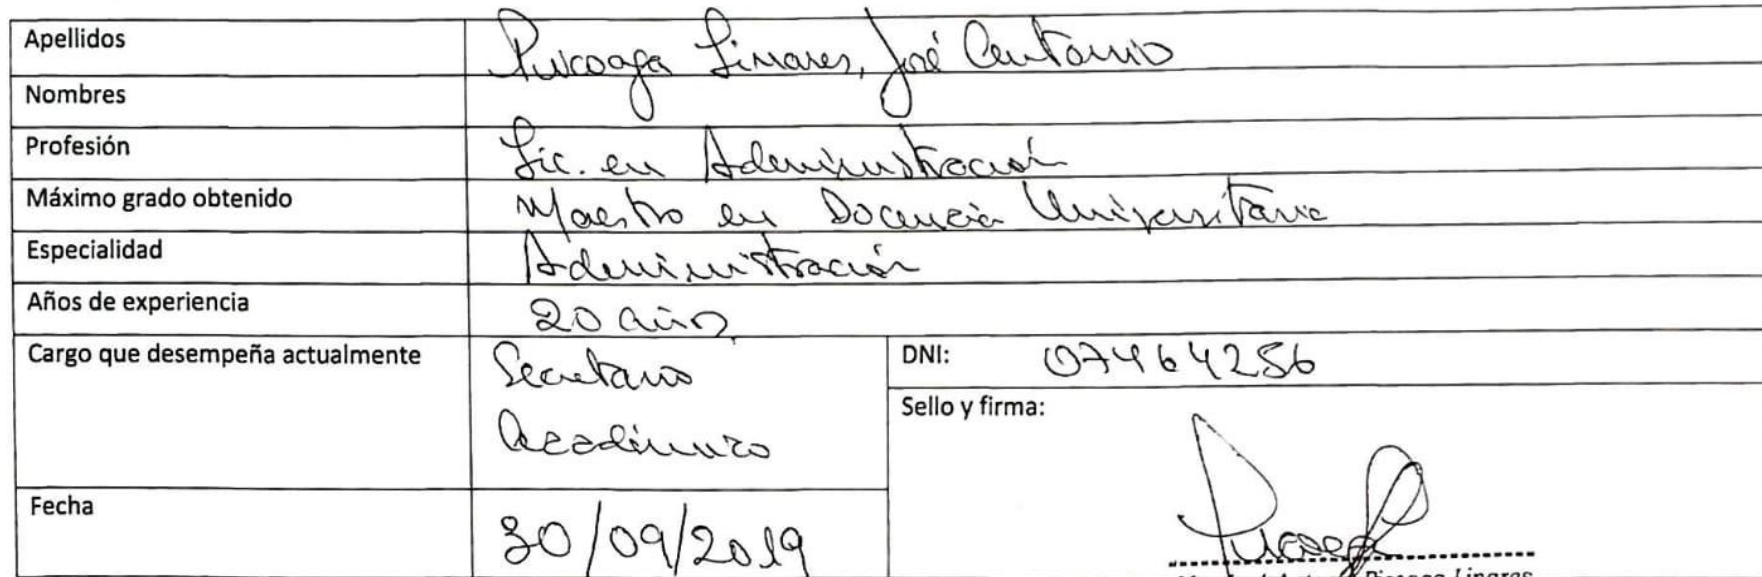 Apellidos
Piscoya Linares, José Antonio
Nombres
Profesión Lic. en Administración
Máximo grado obtenido Maestro en Docencia Universitaria
Especialidad Administración
Años de experiencia 20 años
Cargo que desempeña actualmente Secretario
Académico
DNI: 07464256
Sello y firma:
Fecha 30/09/2019
Linares